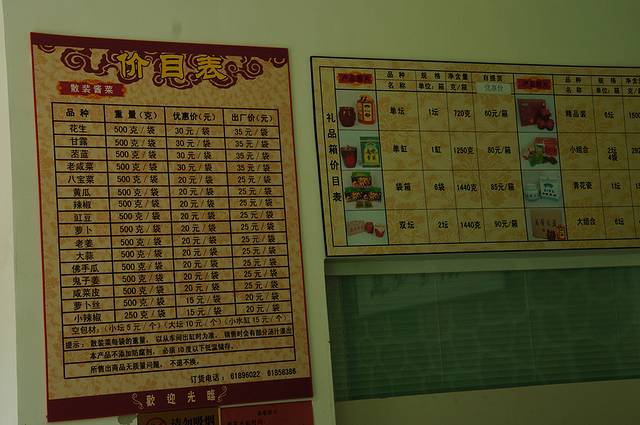 价目表
散装酱菜
品种 重量(克) 优惠价(元) 出厂价(元)
花生 500克/袋 30元/袋 35元/袋
甘露 500克/袋 30元/袋 35元/袋
苤蓝 500克/袋 30元/袋 35元/袋
老咸菜 500克/袋 30元/袋 35元/袋
八宝菜 500克/袋 20元/袋 25元/袋
黄瓜 500克/袋 20元/袋 25元/袋
辣椒 500克/袋 20元/袋 25元/袋
豇豆 500克/袋 20元/袋 25元/袋
萝卜 500克/袋 20元/袋 25元/袋
老姜 500克/袋 20元/袋 25元/袋
大蒜 500克/袋 20元/袋 25元/袋
佛手瓜 500克/袋 20元/袋 25元/袋
鬼子姜 500克/袋 20元/袋 25元/袋
咸菜皮 500克/袋 20元/袋 25元/袋
萝卜丝 500克/袋 15元/袋 20元/袋
小辣椒 250克/袋 15元/袋 20元/袋
空包材:(小坛5元/个)(大坛10元/个)(小水缸15元/个)
提示:散装菜每袋的重量,以从车间出缸时为准,销售时会有部分汤汁渗出
本产品不添加防腐剂,必须10度以下低温储存。
所售出商品无质量问题,不退不换。
订货电话:61896022 61858386
欢迎光临
礼品箱价目表
品种名称 规格单位:箱 净含量克/箱 自提货优惠价
单坛 1坛 720克 60元/箱
单缸 1缸 1250克 80元/箱
袋箱 6袋 1440克 85元/箱
双坛 2坛 1440克 90元/箱
品种名称 规格单位:箱
精品装 6坛
小组合 2坛4袋
青花瓷 1坛
大组合 6坛
请勿吸烟